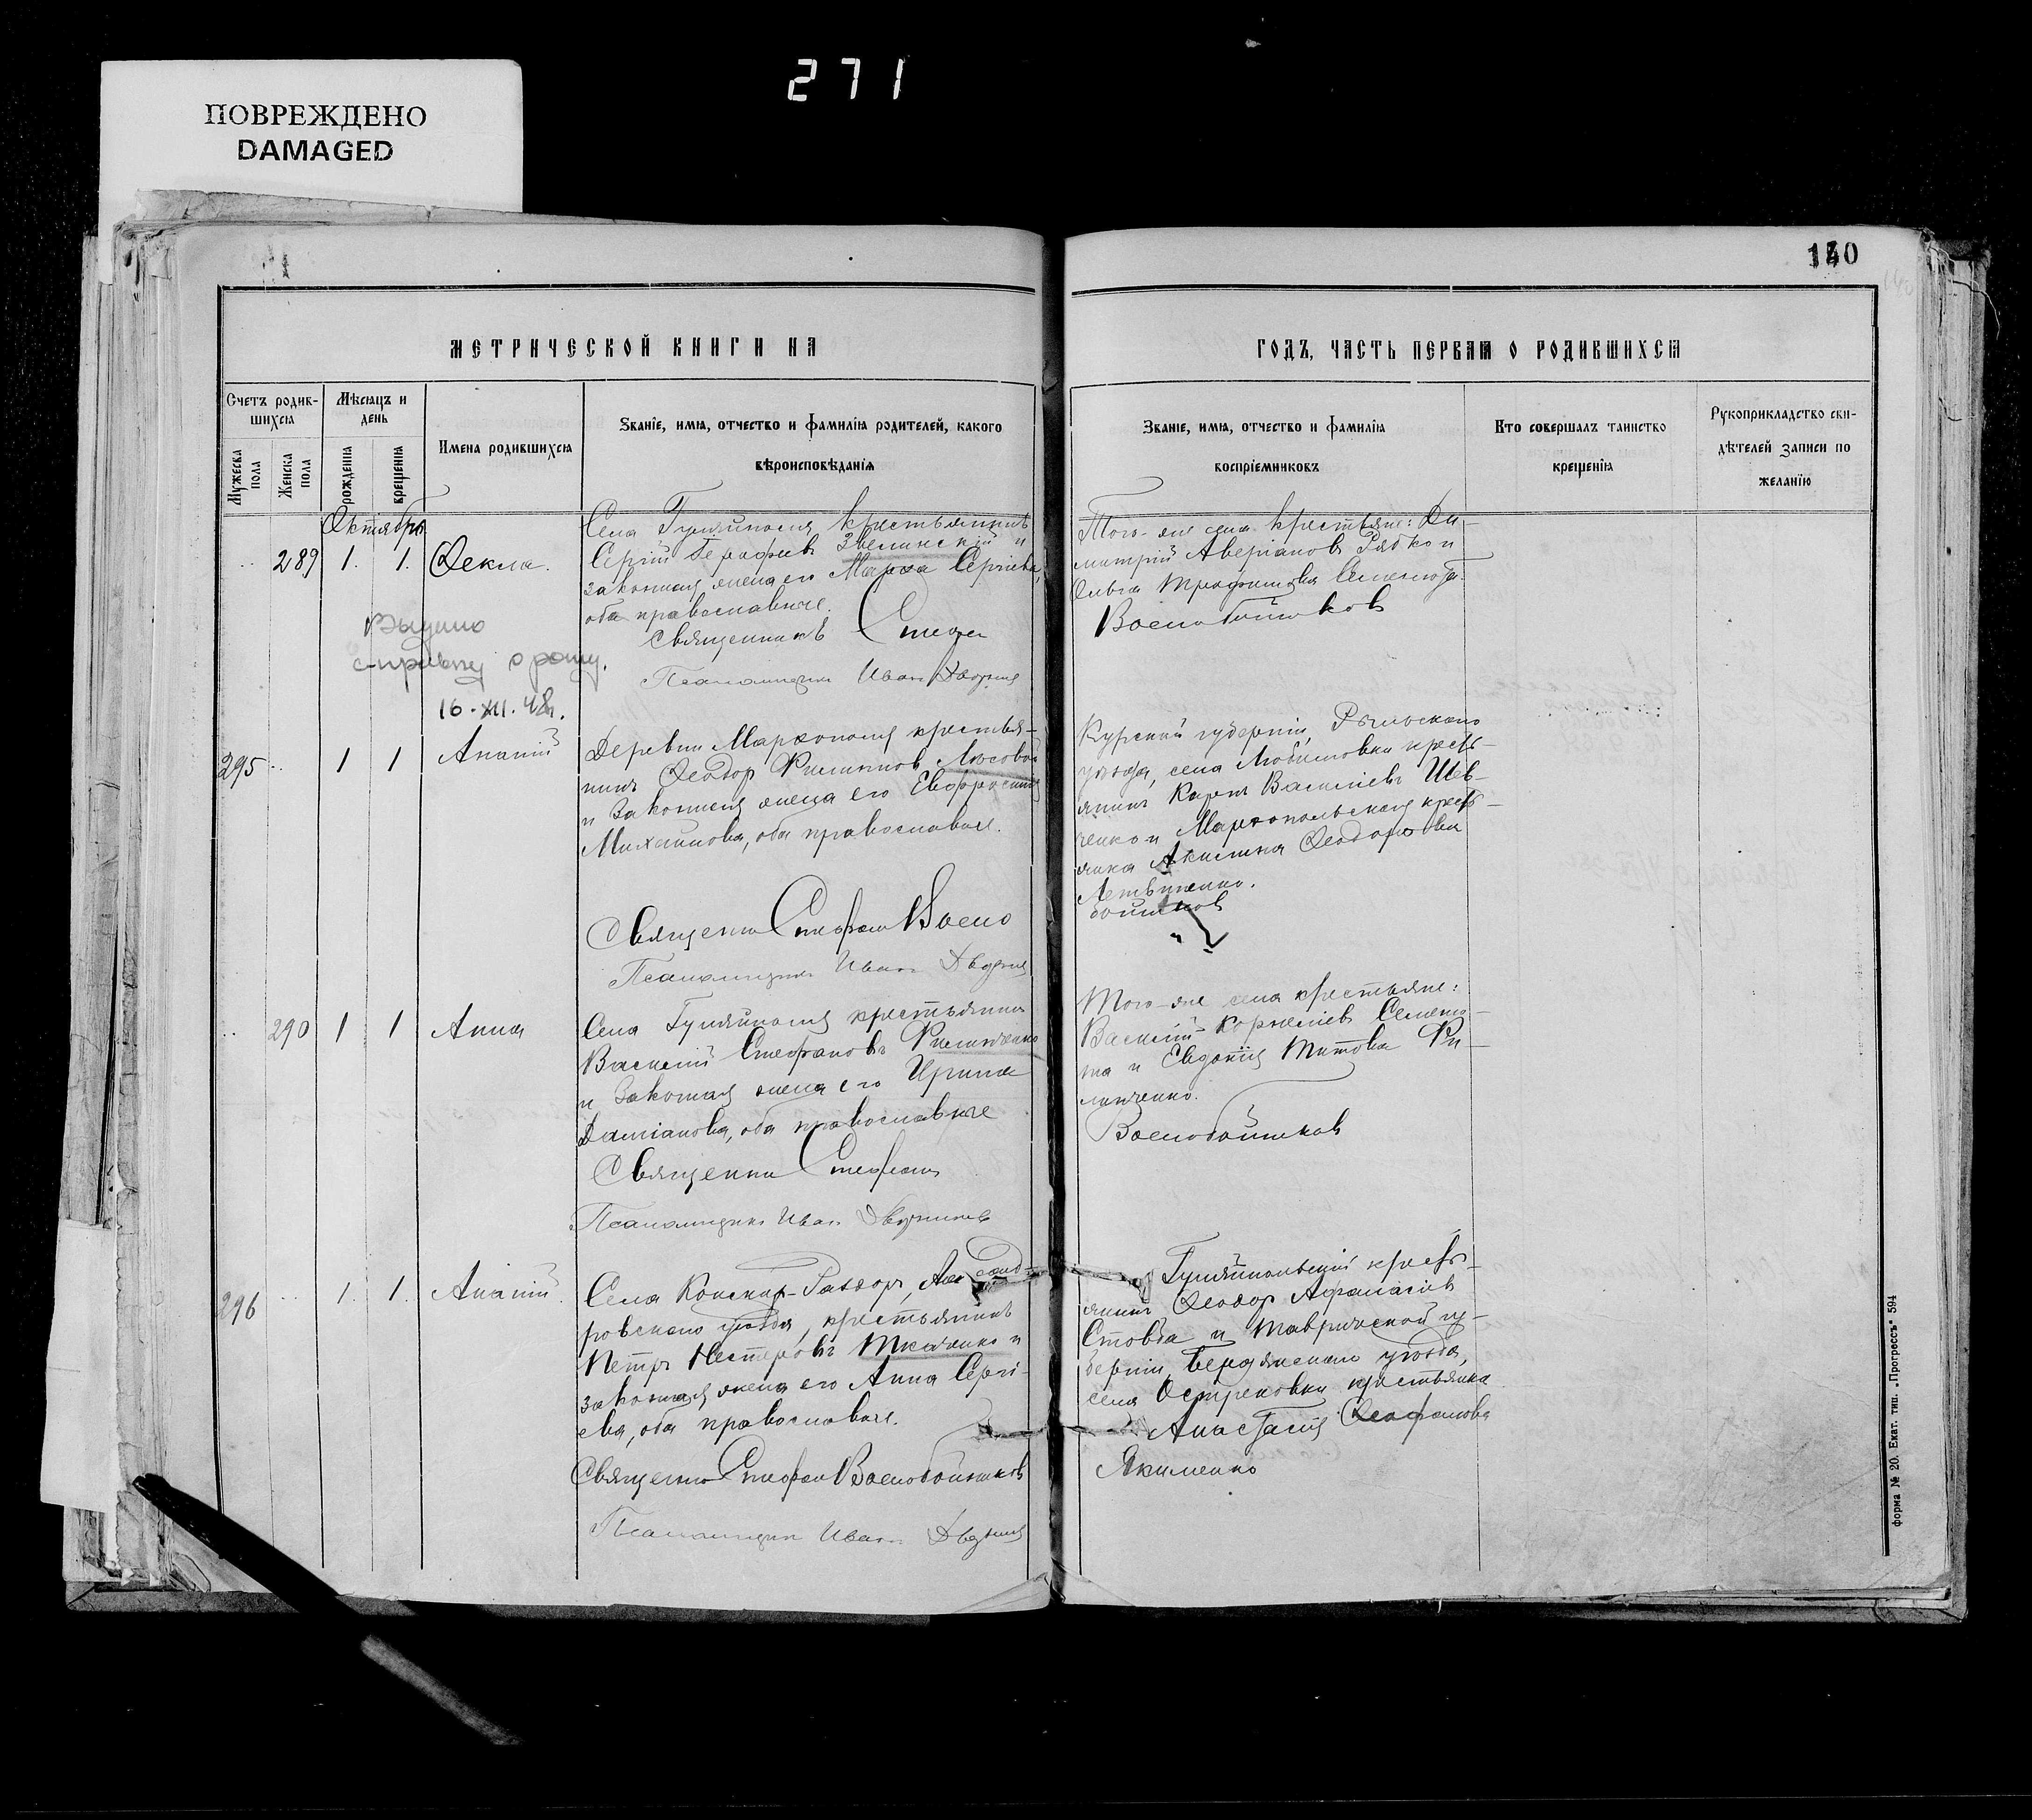 271
ПОВРЕЖДЕНО
DAMAGED
140
МЕТРИЧЕСКОЙ КНИГИ НА
ГОДЪ, ЧАСТЬ ПЕРВАЯ О РОДИВШИХСЯ
Счетъ родив-
шихся
Мужеска пола
Женска пола
Мѣсяцъ и
день
рожденія
крещенія
Имена родившихся
Званіе, имя, отчество и фамилія родителей, какого
вѣроисповѣданія
Званіе, имя, отчество и фамилія
воспріемниковъ
Кто совершалъ таинство
крещенія
Рукоприкладство сви-
дѣтелей записи по
желанію
Октябрь
289 1. 1. Ѳекла.
Села Гуляйполя крестьянинъ
Сергій
законная жена его Марѳа Сергіева,
оба православные.
Священникъ Стефан
Псаломщикъ Иван
Выдано
справку о рожд.
16.XII.48г.
Того-же села крестьяне: Ди-
митрій Аверіановъ Рябко и
Ольга Трофимова
Воснобойников
295 1 1 Ананій
Деревни Марѳополя крестья-
нинъ Ѳеодор Филиппов Люсовой
и законная жена его Евфросинія
Михаилова, оба православные.
Священник Стефан Воско
Псаломщикъ Иван
Курской губерніи, Рыльскаго
уѣзда, села Любимовки кресть-
янинъ Карпъ Василіевъ Шев-
ченко и Марѳопольская кресть-
янка Акилина Ѳеодорова
бойников
290 1 1 Анна
Села Гуляйполя крестьянин
Василій Стефановъ Филипченко
и законная жена его Ирина
Даміанова, оба православные
Священник Стефан
Псаломщикъ Иван
Того-же села крестьяне:
Василій Корнеліев Семеню-
та и Евдокія Титова Фи-
липченко.
Воскобойников
296 1. 1. Ананій.
Села Конскихъ-Раздоръ, Александ-
ровскаго уѣзда, крестьянинъ
Петръ Нестеровъ Ткаченко и
законная жена его Анна Сергі-
ева, оба православные.
Священник Стефан Воскобойников
Псаломщикъ Иван
Гуляйпольскій кресть-
янинъ Ѳеодор Афанасіевъ
Стовба и Таврической гу-
берніи, Бердянскаго уѣзда,
села Остриковки крестьянка
Анастасія Ѳеофанова
Якименко
форма № 20. Екат. тип. „Прогрессъ“ 594